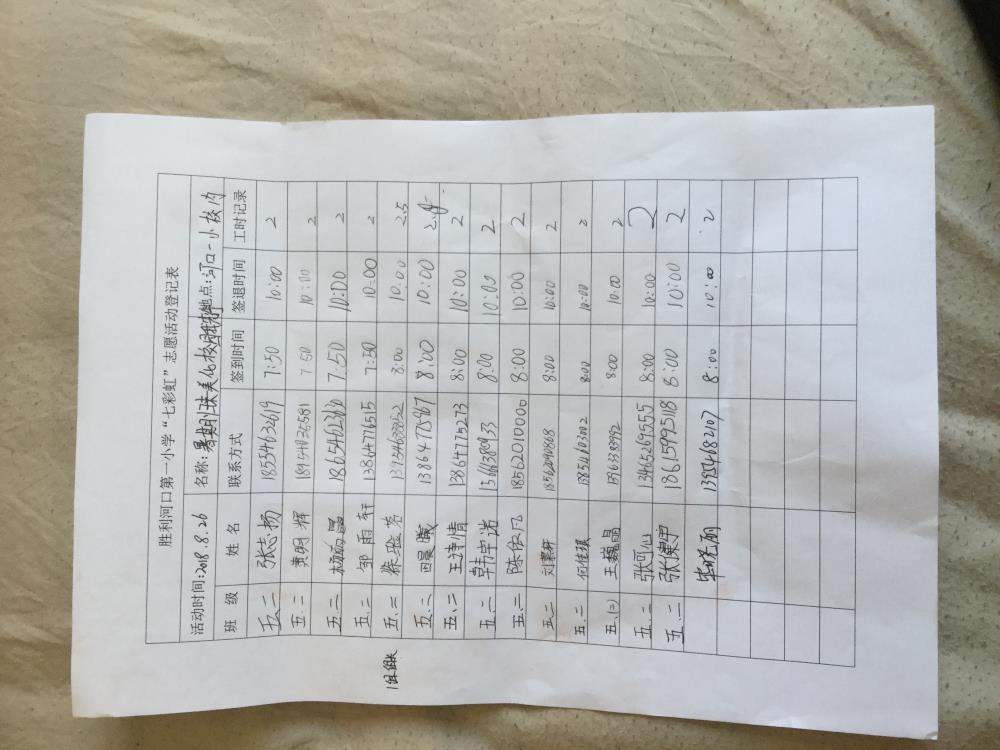 胜利河口第一小学“七彩虹”志愿活动登记表
活动时间:2018.8.26 名称:暑期 美化校园 地点:河口一小校内
班 级 姓 名 联系方式 签到时间 签退时间 工时记录
五.二 张志扬 18554632619 7:50 10:00 2
五.二 黄明辉 7:50 10:00 2
五.二 7:50 10:00 2
五.二 邹雨轩 13864776515 7:50 10:00 2
五.二 8:00 10:00 2.5
五.二 13864775967 8:00 10:00
五.二 王诗情 13864775273 8:00 10:00 2
五.二 韩宇诺 8:00 10:00 2
五.二 陈依凡 18562010000 8:00 10:00 2
五.二 8:00 10:00 2
五.二 何佳琪 8:00 10:00 2
五.(二) 王巍晶 8:00 10:00 2
五.二 张可心 13465269555 8:00 10:00 2
五.二 18615995118 8:00 10:00 2
毕晓丽 13954682107 8:00 10:00 2